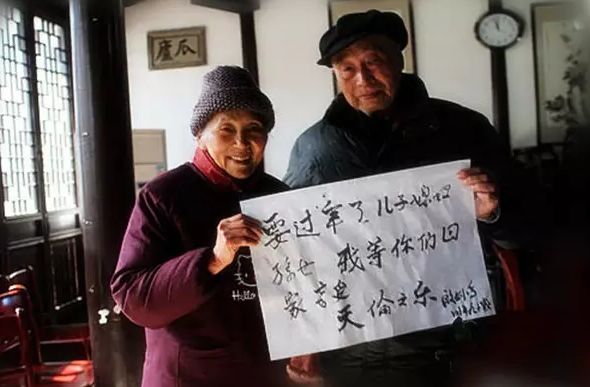 瓜廬
要过年了 儿子媳妇
孙女 我等你们回
家享受 天伦之乐
Hello